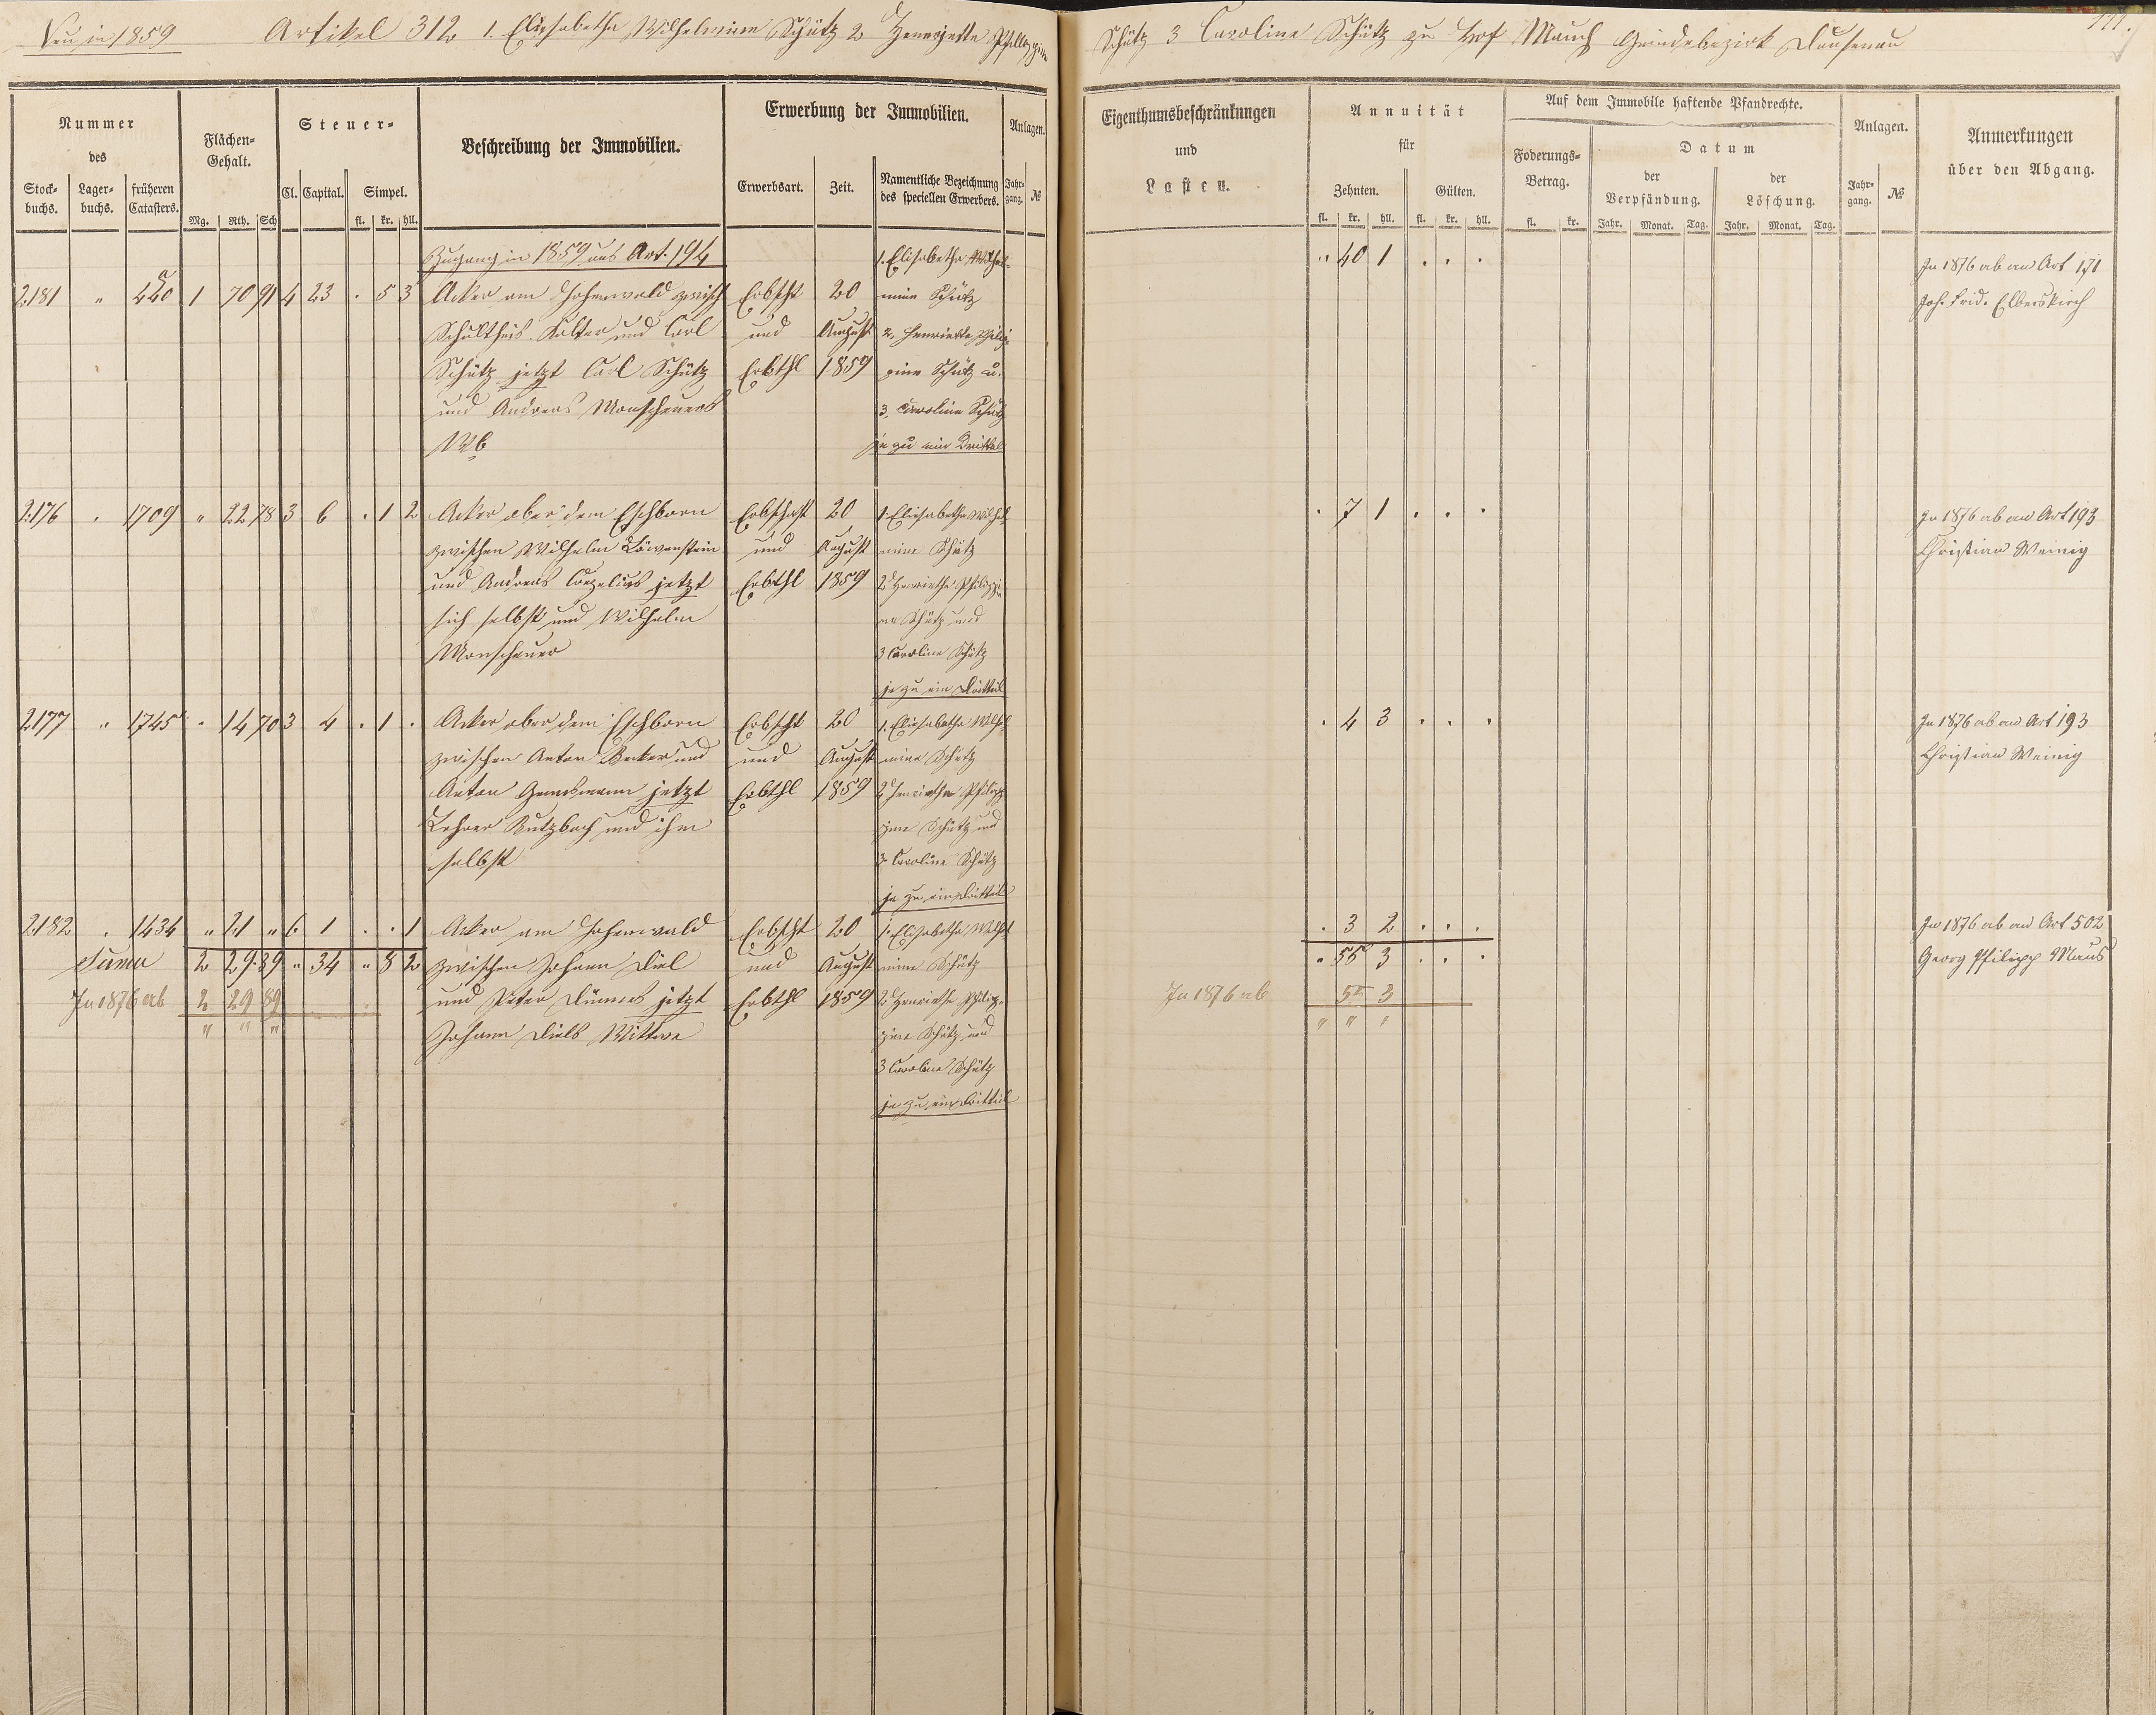 Neu in 1859 Artikel 312 1. Elisabetha Wilhelmine Schütz 2 Henriette Philippine
Schütz 3 Caroline Schütz zu Hof Mauch Gemeindebezirk Dausenau
Nummer
des
Stock-
buchs.
Lager-
buchs.
früheren
Catasters.
Flächen-
Gehalt.
Mg. Rth. Sch
Steuer-
Cl. Capital. Simpel.
fl. kr. hll.
Beschreibung der Immobilien.
Erwerbung der Immobilien.
Erwerbsart. Zeit.
Namentliche Bezeichnung
des speciellen Erwerbers.
Anlagen.
Jahr-
gang. №
Eigenthumsbeschränkungen
und
Lasten.
Annuität
für
Zehnten. Gülten.
fl. kr. hll. fl. kr. hll.
Auf dem Immobile haftende Pfandrechte.
Foderungs-
Betrag.
fl. kr.
Datum
der
Verpfändung.
Jahr. Monat. Tag.
der
Löschung.
Jahr. Monat. Tag.
Anlagen.
Jahr-
gang. №
Anmerkungen
über den Abgang.
Zugang in 1859 aus Art. 194
2181 " 440 1 70 91 4 23 . 5 3 Acker am Hohenwald zwisch
Schultheis Kalter und Carl
Schütz jetzt Carl Schütz
und Andreas Monschauers
Wb
Erbscht
und
Erbthl
20
August
1859
1. Elisabetha Wilhel-
mine Schütz
2, Henriette Philip-
pine Schütz u.
3, Caroline Schütz
je zu ein Drittel
" 40 1 . . .
In 1876 ab an Art 171
Joh. Frid. Elberskirch
2176 . 1709 " 22 78 3 6 . 1 2 Acker ober dem Eschborn
zwischen Wilhelm Löwenstein
und Andreas Corzelius jetzt
sich selbst und Wilhelm
Monschauer
Erbschaft
und
Erbthl
20
August
1859
1. Elisabetha Wilhel-
mine Schütz
2 Henriethe Philippi-
ne Schütz und
3 Caroline Schütz
je zu ein Drittel
. 7 1 . . .
In 1876 ab an Art 193
Christian Weinig
2177 " 1745 . 14 70 3 4 . 1 . Acker ober dem Eschborn
zwischen Anton Becker und
Anton jetzt
Lehrer Kutzbach und ihm
selbst
Erbscht
und
Erbthl
20
August
1859
1. Elisabetha Wilhel-
mine Schütz
2 Henriethe Philipp-
ine Schütz und
3. Caroline Schütz
je zu ein Drittel
. 4 3 . . .
In 1876 ab an Art 193
Christian Weinig
2182 . 1434 " 21 " 6 1 . . 1 Acker am Hohenwald
zwischen Johann Diel
und Peter jetzt
Johann Diels Wittwe
Erbscht
und
Erbthl
20
August
1859
1. Elisabetha Wilhel-
mine Schütz
2 Henriethe Philip-
pine Schütz und
3 Caroline Schütz
je zu ein Drittel
. 3 2 . . .
In 1876 ab an Art 502
Georg Philipp Maus
Suma 2 29 39 " 34 " 8 2
" 55 3 . . .
In 1876 ab 2 29 39
" " "
In 1876 ab 55 3
" " "